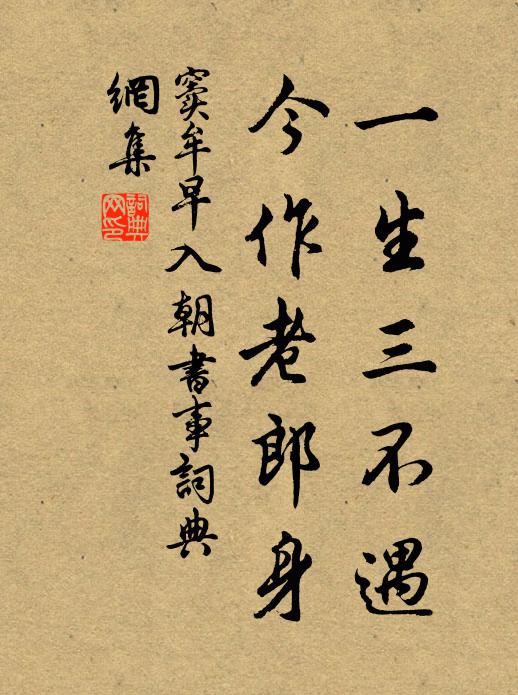 一生三不遇
今作老郎身
窦牟早入朝書事詞典
網集
詞典网印